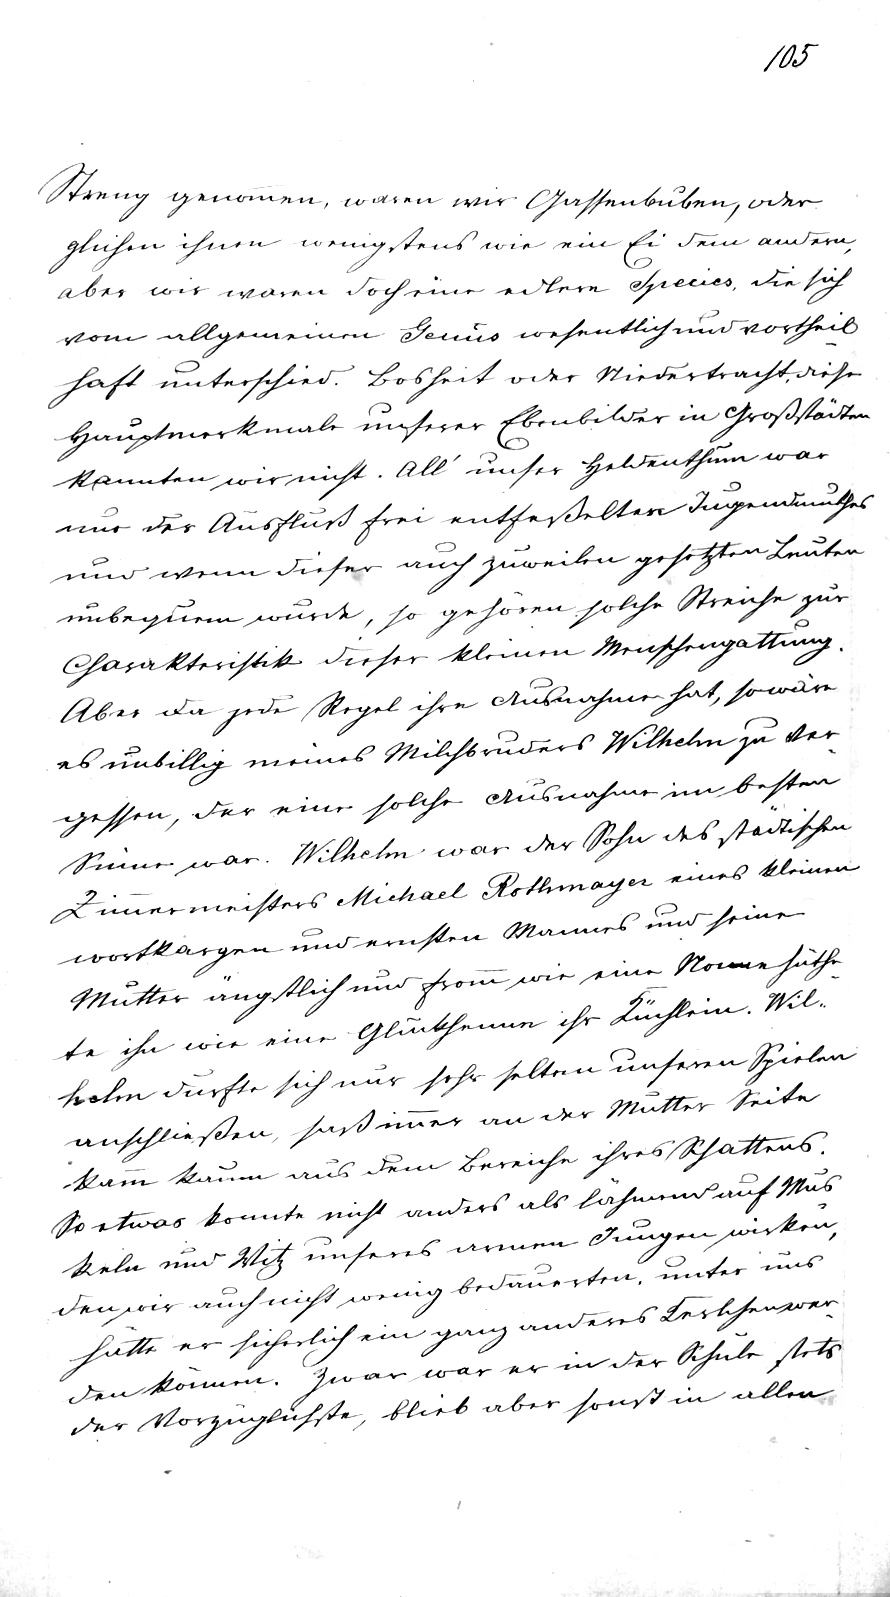 105
Streng genom̅en, waren wir Gassenbuben, oder
glichen ihnen wenigstens wie ein Ei dem andern,
aber wir waren doch eine edlere Species, die sich
vom allgemeinen Genus wesentlich und vortheil
haft unterschied. Bosheit oder Niedertracht, diese
Hauptmerkmale unserer Ebenbilder in Großstädten
kannten wir nicht. All' unser Heldenthum war
nur der Ausfluß frei entfeßelten Jugendmuthes
und wenn dieser auch zuweilen gesetzten Leuten
unbequem wurde, so gehören solche Streiche zur
Charakteristik dieser kleinen Menschengattung.
Aber da jede Regel ihre Ausnahme hat, so wäre
es unbillig meines Milchbruders Wilhelm zu ver-
gessen, der eine solche Ausnahme im besten
Sinne war. Wilhelm war der Sohn des städtischen
Zim̅ermeisters Michael Rothmayer eines kleinen
wortkargen und ernsten Mannes und seine
Mutter ängstlich und from̅ wie eine Nonne hüthe-
te ihn wie eine Gluckhenne ihr Küchlein. Wil-
helm durfte sich nur sehr selten unseren Spielen
anschließen, saß im̅er an der Mutter Seite
kam̅ kaum aus dem Bereiche ihres Schattens.
So etwas konnte nicht anders als lähmend auf Mus
keln und Witz unseres armen Jungen wirken,
den wir auch nicht wenig bedauerten, unter uns
hätte er sicherlich ein ganz anderes Kerlchen wer-
den können. Zwar war er in der Schule stets
der Vorzüglichste, blieb aber sonst in allen